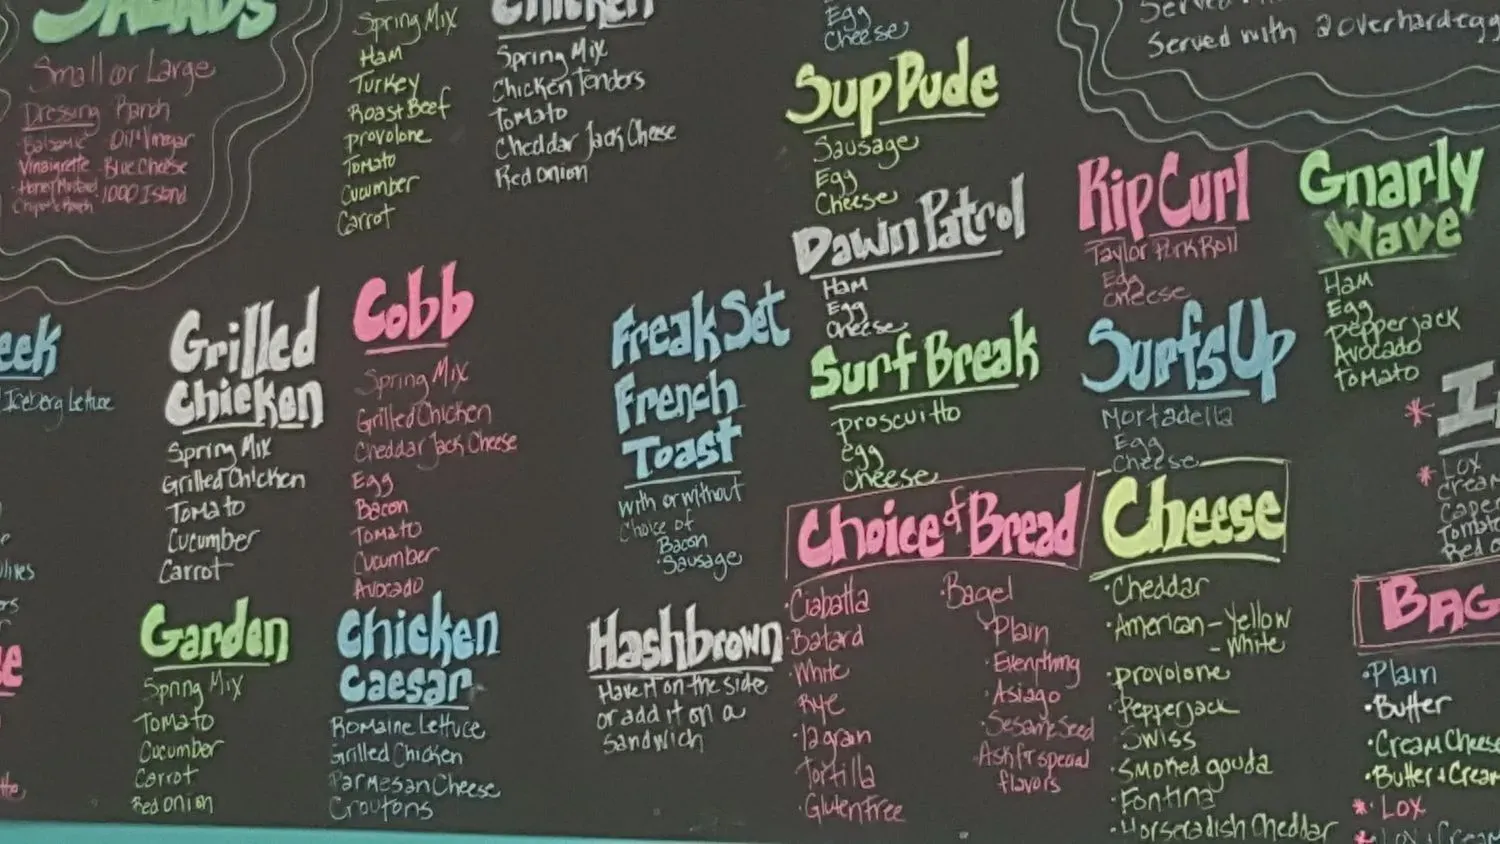 SALADS
Small or Large
Dressing Ranch
Balsamic Oil & Vinegar
Vinaigrette Blue Cheese
Honey Mustard 1000 Island
Chipotle Ranch
Spring Mix
Ham
Turkey
Roast Beef
provolone
Tomato
Cucumber
Carrot
Chicken
Spring Mix
Chicken Tenders
Tomato
Cheddar Jack Cheese
Red onion
eek
Iceberg Lettuce
Grilled
Chicken
Spring Mix
Grilled Chicken
Tomato
Cucumber
Carrot
Cobb
Spring Mix
Grilled Chicken
Cheddar Jack Cheese
Egg
Bacon
Tomato
Cucumber
Avocado
Garden
Spring Mix
Tomato
Cucumber
Carrot
Red onion
Chicken
Caesar
Romaine Lettuce
Grilled Chicken
Parmesan Cheese
Croutons
Freak Set
French
Toast
with or without
Choice of
Bacon
Sausage
Hashbrown
Have it on the side
or add it on a
sandwich
Egg
Cheese
Sup Dude
Sausage
Egg
Cheese
Dawn Patrol
Ham
Egg
Cheese
Surf Break
proscuitto
egg
cheese
Served with 2 overhard egg
Rip Curl
Taylor Pork Roll
Egg
Cheese
Surfs Up
Mortadella
Egg
Cheese
Gnarly
Wave
Ham
Egg
Pepperjack
Avocado
Tomato
Choice of Bread
·Ciabatta
·Batard
·White
·Rye
·12 grain
·Tortilla
·Gluten Free
·Bagel
·Plain
·Everything
·Asiago
·Sesame Seed
·Ask for special
flavors
Cheese
·Cheddar
·American - Yellow
- White
·provolone
·Pepperjack
·Swiss
·Smoked gouda
·Fontina
·Horseradish Cheddar
* Lox
Cream
Caper
Tomato
Red O
BAG
·Plain
·Butter
·Cream Cheese
·Butter & Cream
* ·Lox
* ·Lox & Cream